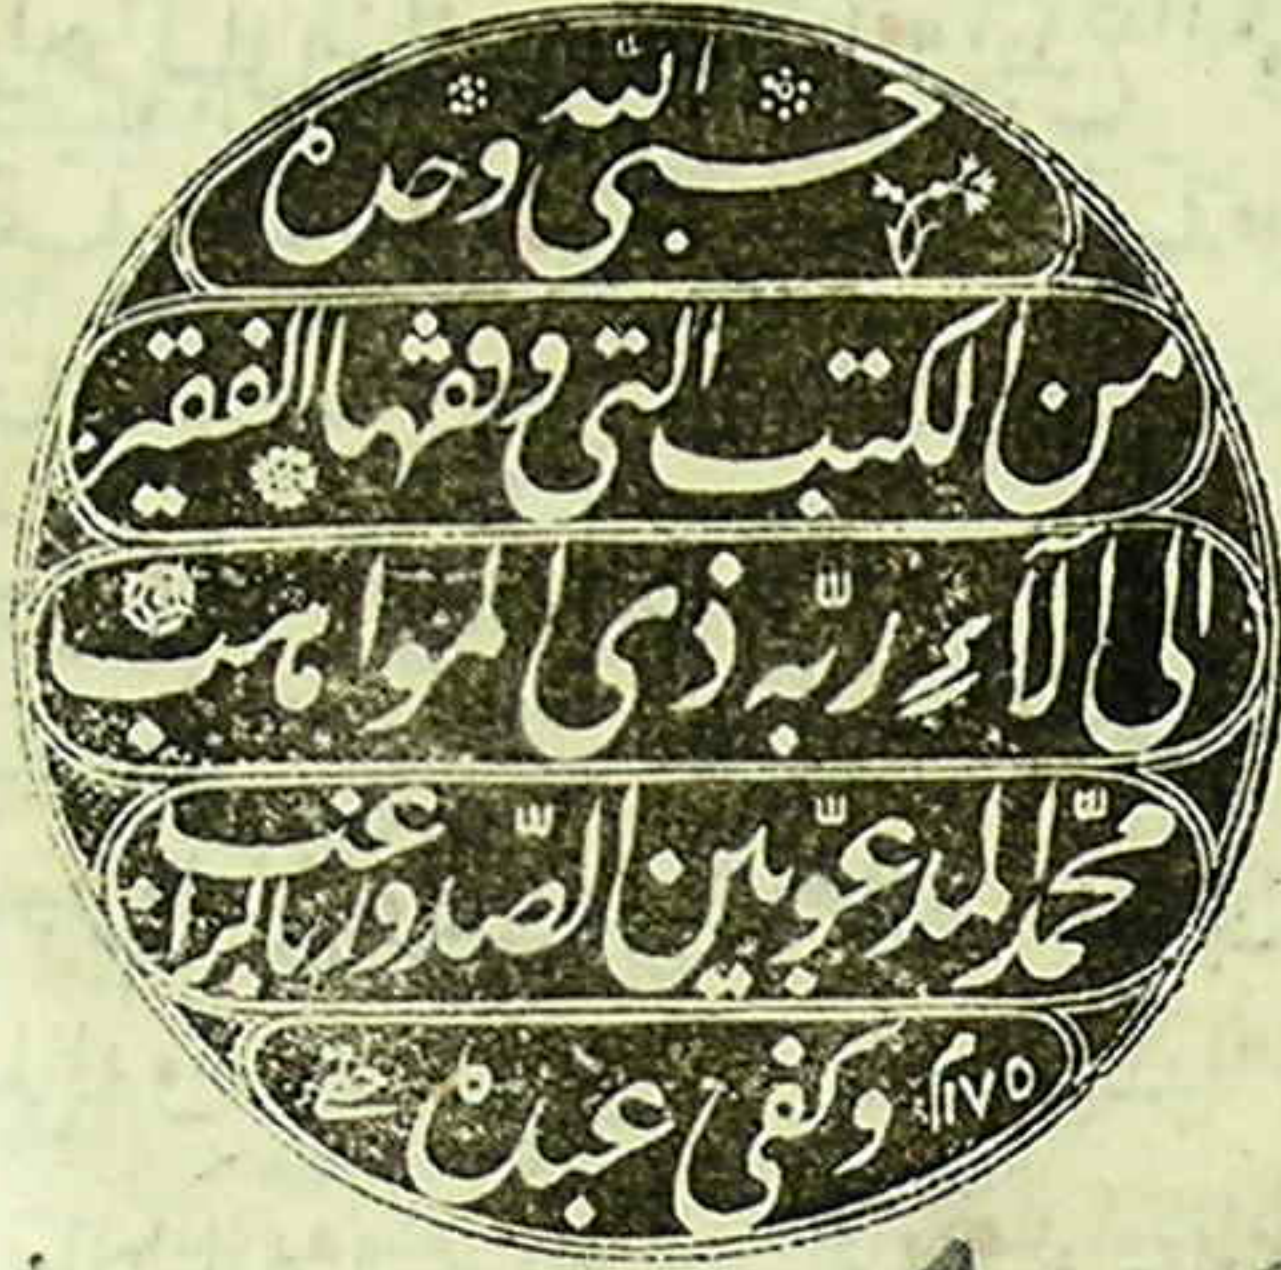 حسبى الله وحده
من الكتب التى وقفها الفقير
الى آلاءِ ربّه ذى المواهب
محمّد المدعوّ بين الصّدور بالراغب
١١٧٥ وكفى عبده